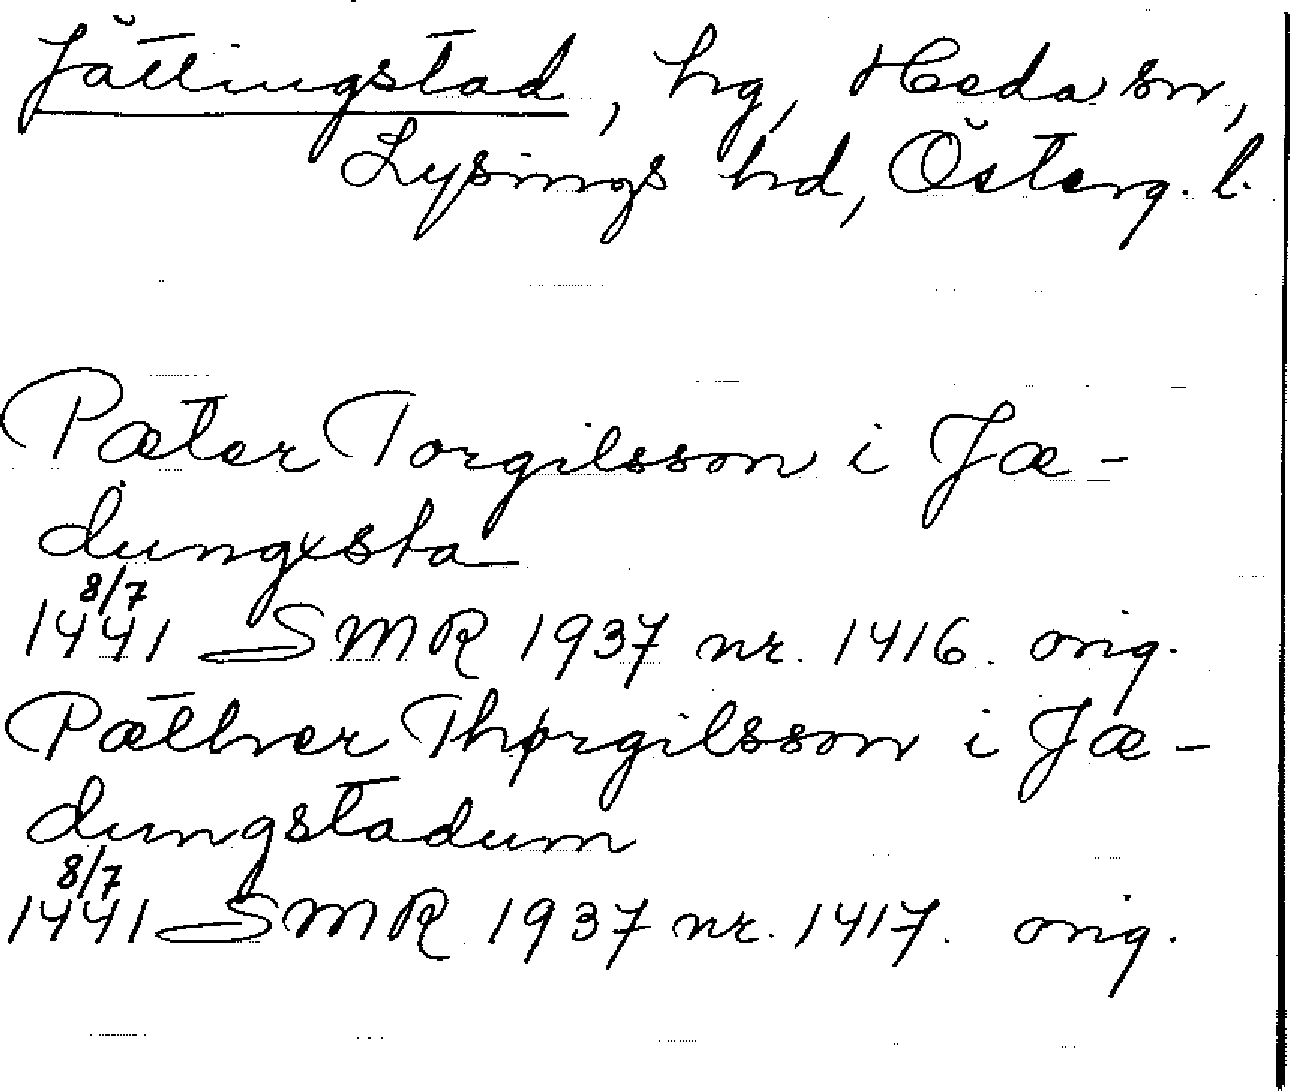 Jättingstad, hg, Heda sn,
Lysings hd, Österg. l.
Pæter Torgilsson i Jæ-
dungxsta
8/7
1441 SMR 1937 nr. 1416. orig.
Pæthver Thørgilsson i Jæ-
dungstadum
8/7
1441 SMR 1937 nr. 1417. orig.